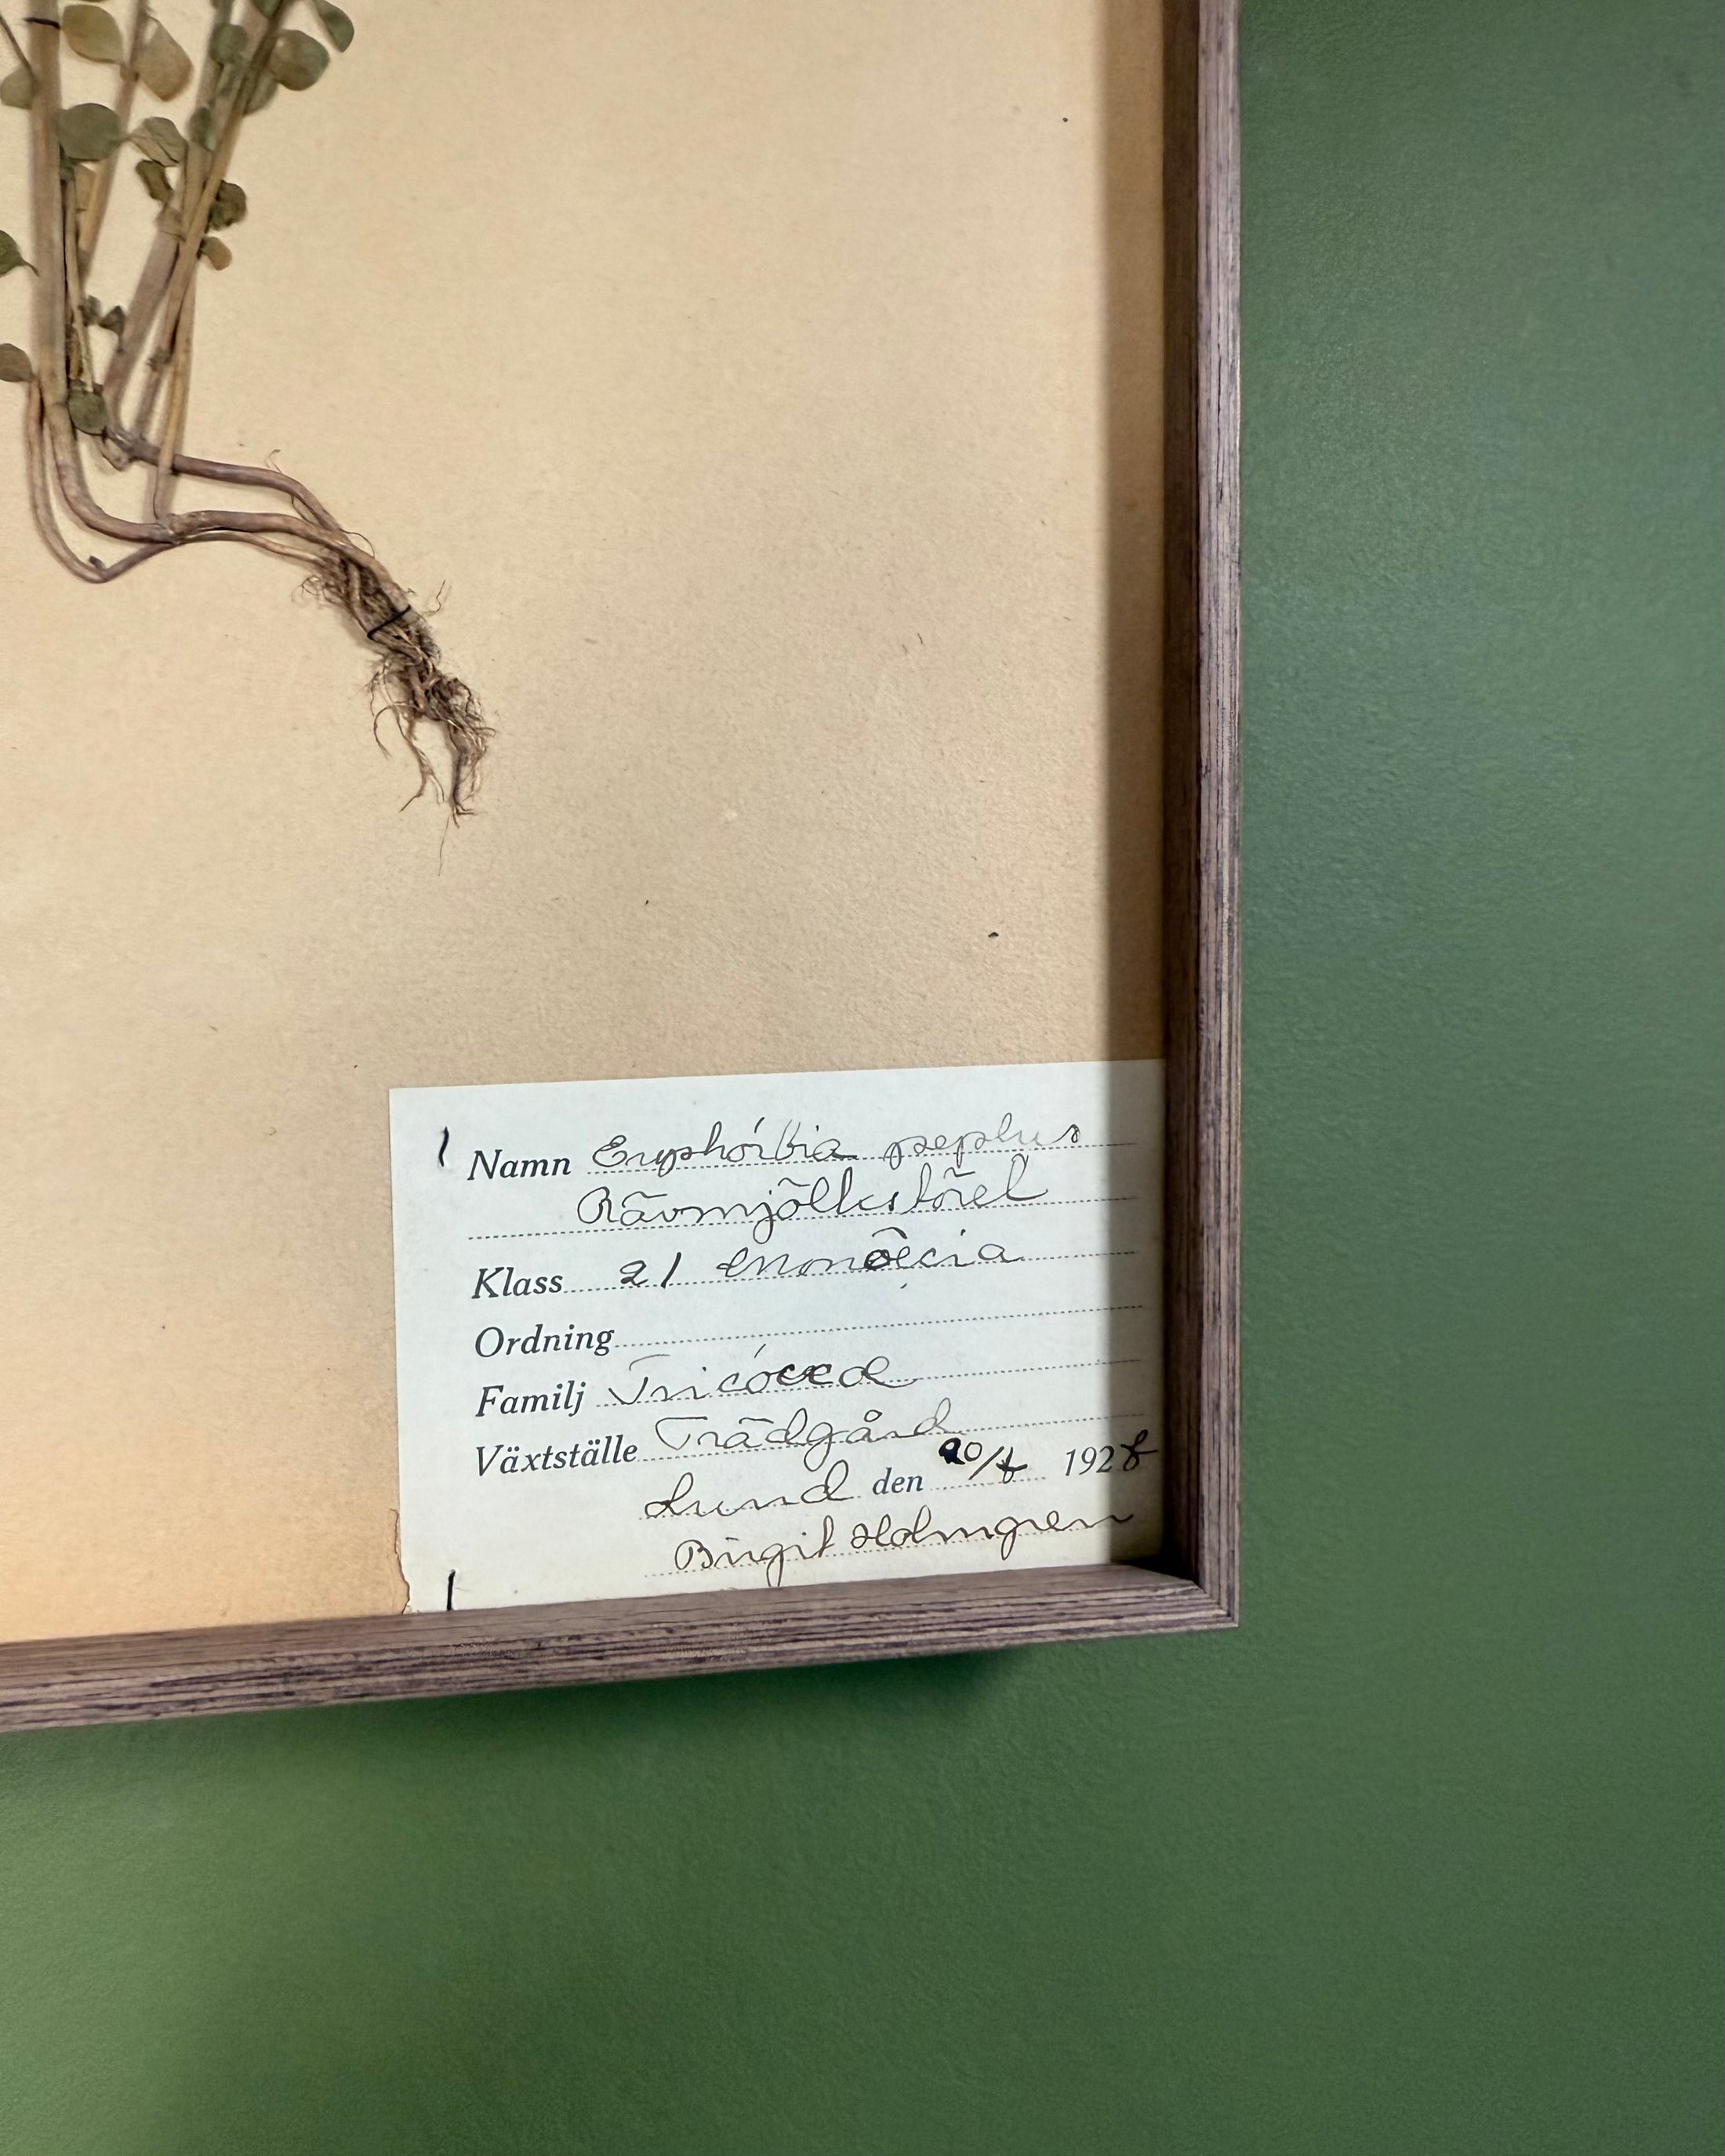 Namn Euphórbia peplus
Rävmjölkstörel
Klass 21 Monoëcia
Ordning
Familj Tricóccæ
Växtställe Trädgård
Lund den 20/8 1928
Birgit Holmgren